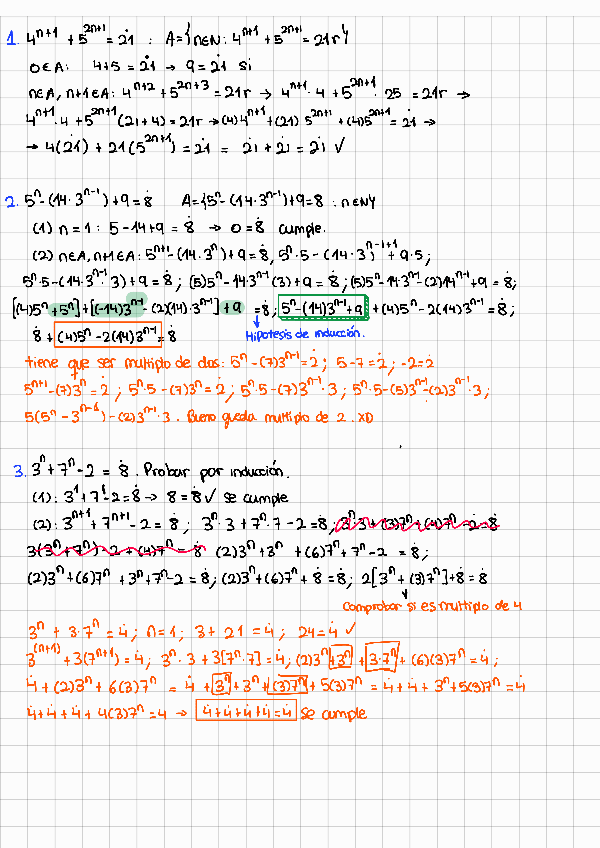 1. 4^{n+1} + 5^{2n+1} = 2̇1 : A={n∈N: 4^{n+1} + 5^{2n+1} = 21r}
0∈A: 4+5 = 2̇1 → 9 = 2̇1 Si
n∈A, n+1∈A: 4^{n+2} + 5^{2n+3} = 21r → 4^{n+1}·4 + 5^{2n+1}·25 = 21r →
4^{n+1}·4 + 5^{2n+1}(21+4) = 21r → (4)4^{n+1} + (21)5^{2n+1} + (4)5^{2n+1} = 2̇1 →
→ 4(2̇1) + 21(5^{2n+1}) = 2̇1 = 2̇1 + 2̇1 = 2̇1 ✓
2. 5^n - (14·3^{n-1}) + 9 = 8̇ A={5^n - (14·3^{n-1}) + 9 = 8 : n∈N}
(1) n = 1 : 5 - 14 + 9 = 8̇ → 0 = 8̇ cumple.
(2) n∈A, n+1∈A: 5^{n+1} - (14·3^n) + 9 = 8, 5^n·5 - (14·3^{n-1+1}) + 9·5;
5^n·5 - (14·3^{n-1}·3) + 9 = 8̇ ; (5)5^n - 14·3^{n-1}(3) + 9 = 8̇ ; (5)5^n - 14·3^{n-1} - (2)14^{n-1} + 9 = 8;
[(4)5^n + 5^n] + [(-14)3^{n-1} - (2)(14)·3^{n-1}] + 9 = 8; 5^n - (14)3^{n-1} + 9 + (4)5^n - 2(14)3^{n-1} = 8;
8̇ + (4)5^n - 2(14)3^{n-1} = 8 Hipotesis de inducción.
tiene que ser multiplo de dos: 5^n - (7)3^{n-1} = 2̇ ; 5 - 7 = 2̇ ; -2 = 2̇
5^{n+1} - (7)3^n = 2̇ ; 5^n·5 - (7)3^n = 2̇ ; 5^n·5 - (7)3^{n-1}·3 ; 5^n·5 - (5)3^{n-1} - (2)3^{n-1}·3 ;
5(5^n - 3^{n-1}) - (2)3^{n-1}·3 . Bueno queda multiplo de 2. XD
3. 3^n + 7^n - 2 = 8̇ . Probar por inducción.
(1): 3^1 + 7^1 - 2 = 8̇ → 8 = 8̇ ✓ se cumple
(2): 3^{n+1} + 7^{n+1} - 2 = 8̇ ; 3^n·3 + 7^n·7 - 2 = 8; 3^n·3 + (3)7^n + (4)7^n - 2 = 8
3(3^n + 7^n) - 2 + (4)7^n = 8 (2)3^n + 3^n + (6)7^n + 7^n - 2 = 8;
(2)3^n + (6)7^n + 3^n + 7^n - 2 = 8; (2)3^n + (6)7^n + 8̇ = 8; 2[3^n + (3)7^n] + 8 = 8
Comprobar si es multiplo de 4
3^n + 3·7^n = 4̇ ; n = 1; 3 + 21 = 4̇ ; 24 = 4̇ ✓
3^{(n+1)} + 3(7^{n+1}) = 4; 3^n·3 + 3[7^n·7] = 4; (2)3^n + 3^n + 3·7^n + (6)(3)7^n = 4;
4̇ + (2)3^n + 6(3)7^n = 4̇ + 3^n + 3^n + (3)7^n + 5(3)7^n = 4̇ + 4̇ + 3^n + 5(3)7^n = 4̇
4̇ + 4̇ + 4̇ + 4(3)7^n = 4 → 4̇ + 4̇ + 4̇ + 4̇ = 4̇ se cumple